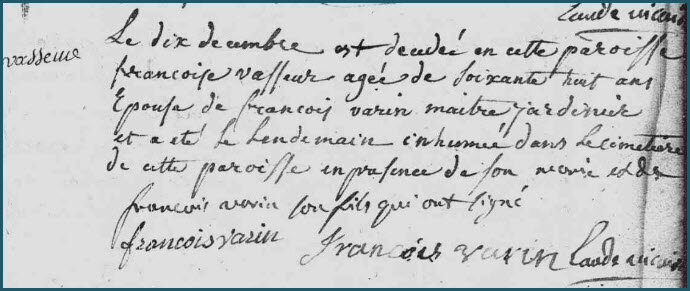 Le dix decembre est decedeé en cette paroisse
vasseur
francoise vasseur ageé de soixante huit ans
Epouse de francois varin maitre jardinier
et a eté le lendemain inhumeé dans le cimetiere
de cette paroisse en presence de son marie et de
francois varin son fils qui ont signé
francois varin francois varin